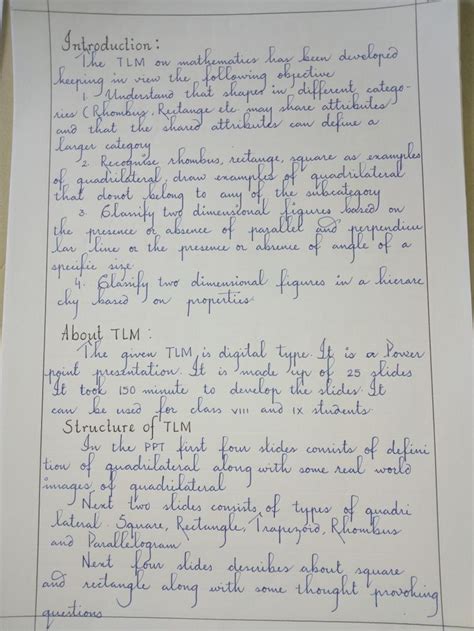 Introduction :
The TLM on mathematics has been developed
keeping in view the following objective
1. Understand that shapes in different catego-
ries (Rhombus, Rectange etc may share attributes
and that the shared attributes can define a
larger category
2. Recognise rhombus, rectange, square as examples
of quadrilateral, draw examples of quadrilateral
that donot belong to any of the subcategory
3. Classify two dimensional figures based on
the presence or absence of parallel and perpendicu
lar line or the presence or absence of angle of a
specific size
4. Classify two dimensional figures in a hierar
chy based on properties.
About TLM :
The given TLM is digital type. It is a Power
point presentation. It is made up of 25 slides
It took 150 minute to develop the slides. It
can be used for class VIII and IX students.
Structure of TLM
In the PPT first four slides consists of defini
tion of quadrilateral along with some real world
images of quadrilateral
Next two slides consists of types of quadri
lateral. Square, Rectangle, Trapezoid, Rhombus
and Parallelogram
Next four slides describes about square
and rectangle along with some thought provoking
questions